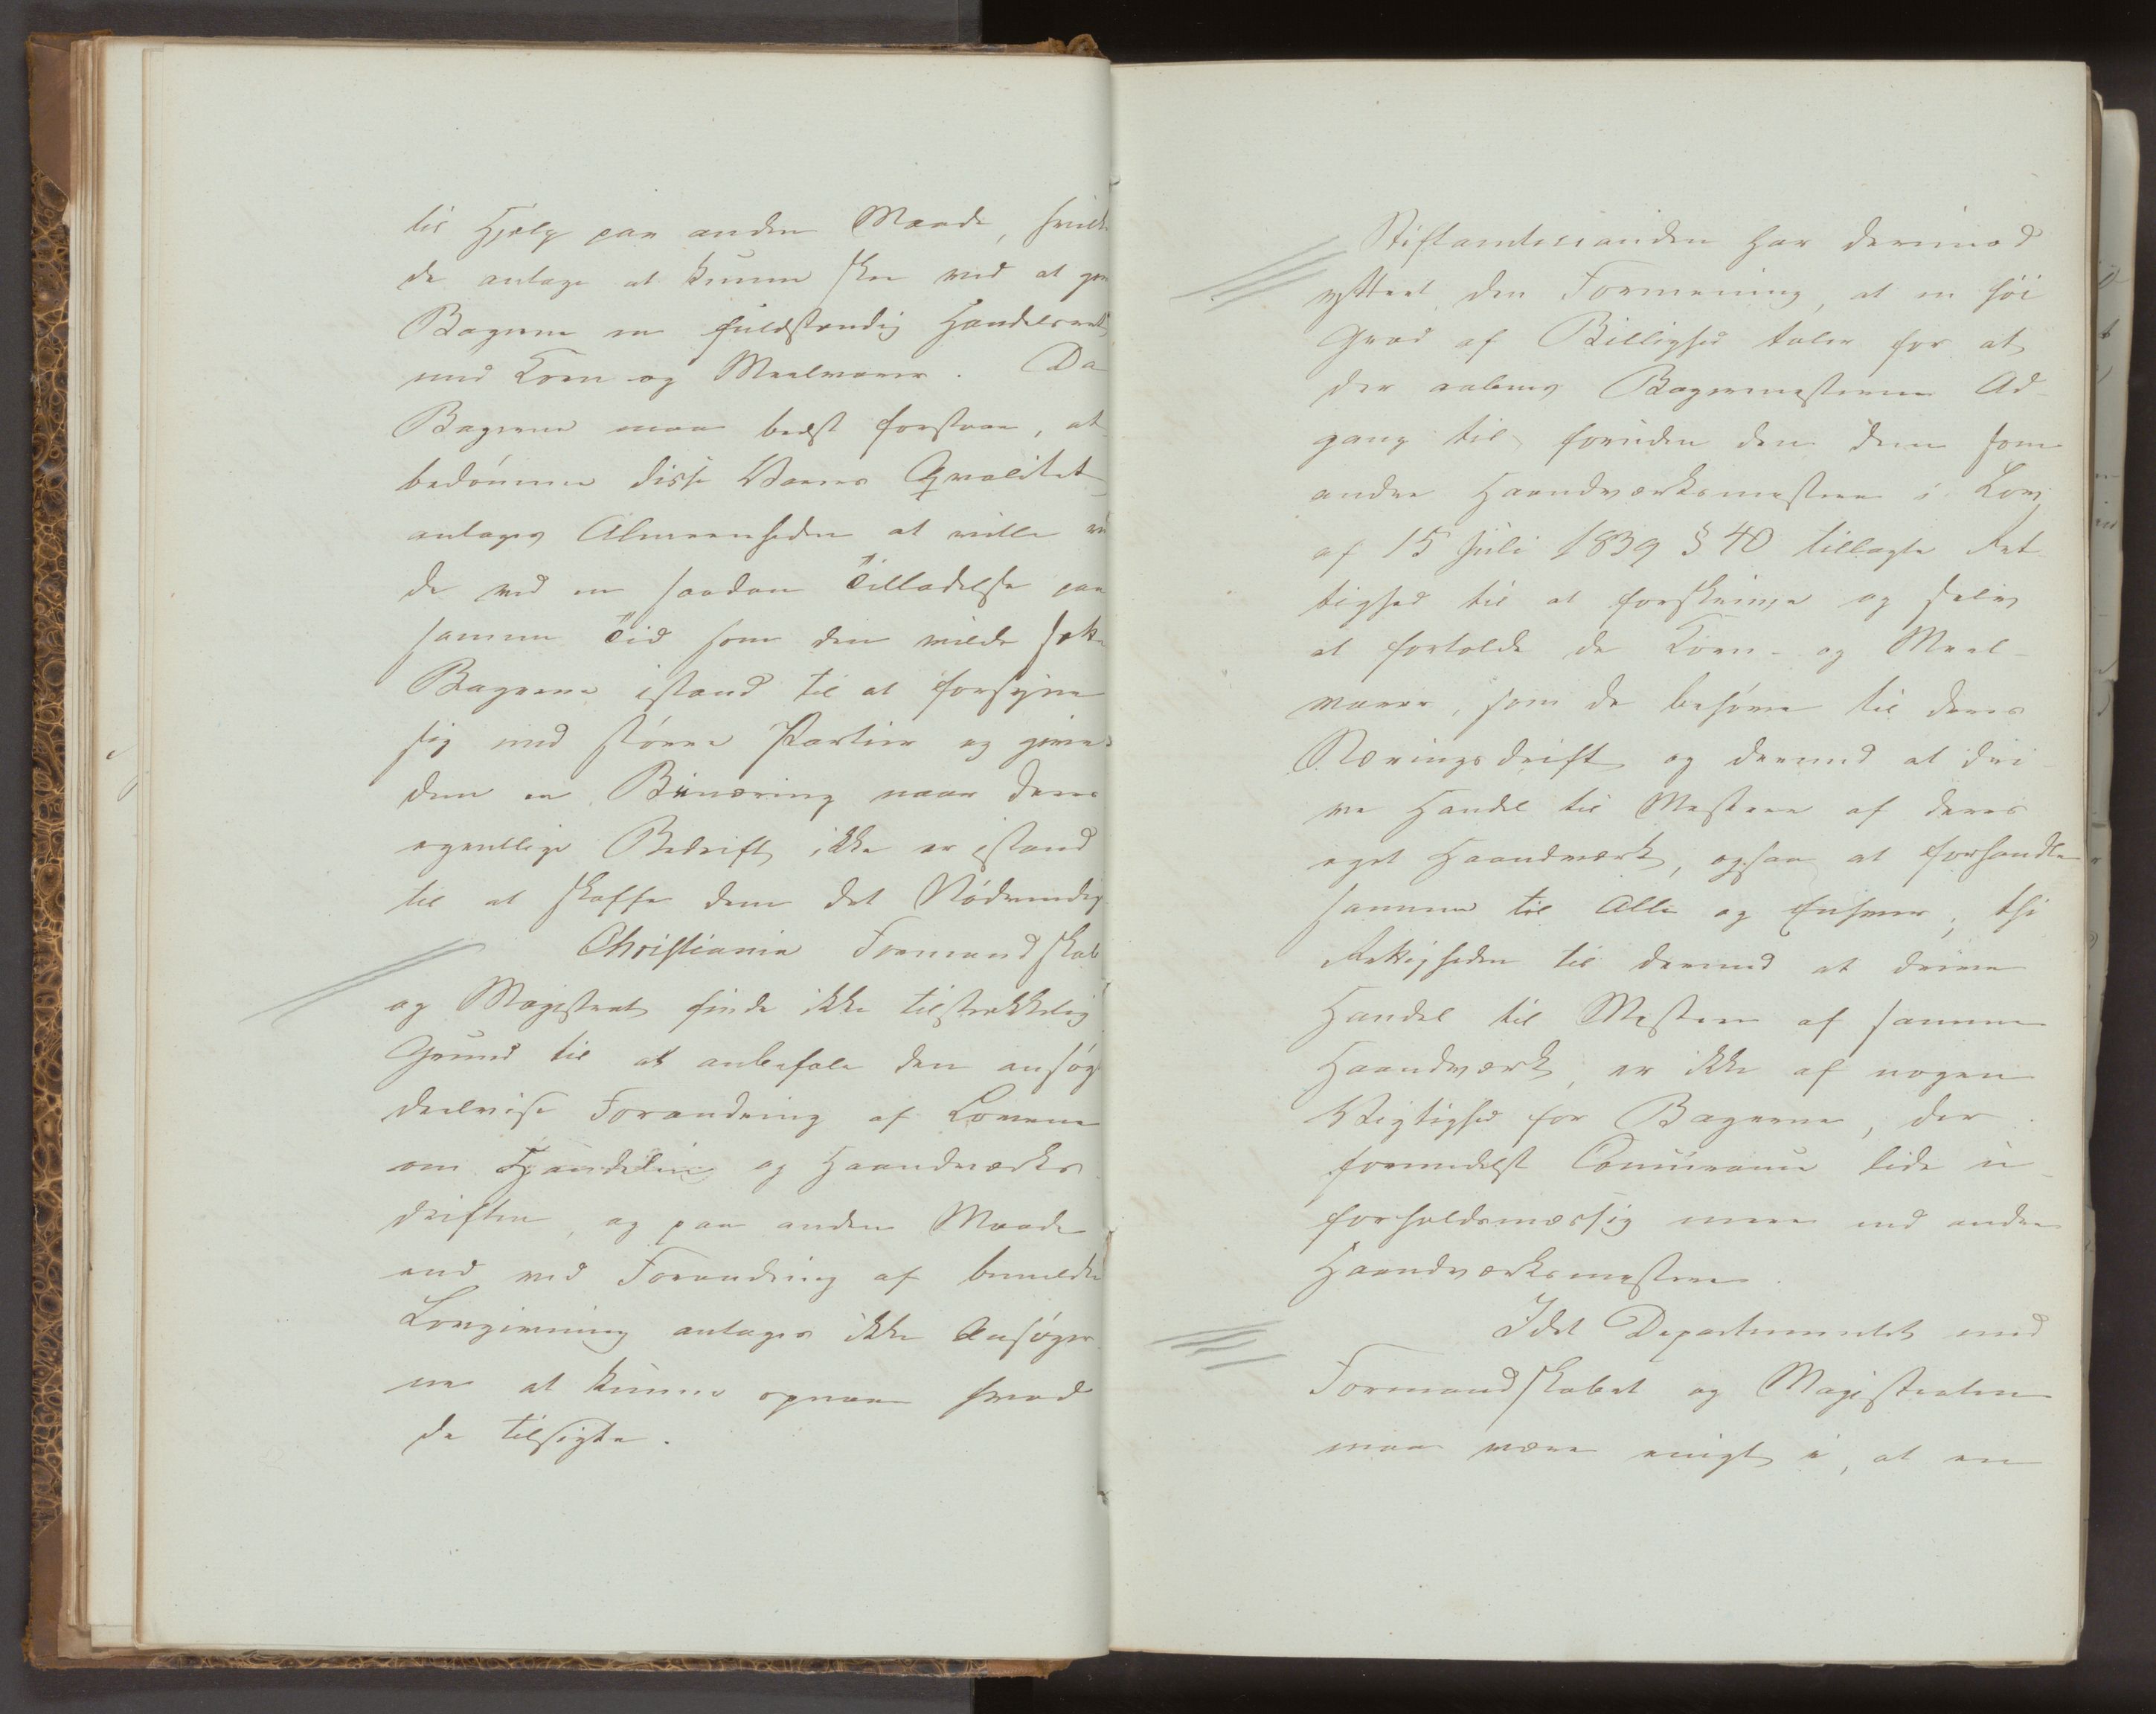 til Hjælp paa anden Maade, hvilket
de antage at kunne skee ved at give
Bagerne en fuldstændig Handelsret
med Korn og Meelvarer. Da
Bagerne maa bedst forstaae, at
bedømme disse Varers Qvalitet
antages Almeenheden at ville vin
de ved en saadan Tilladelse paa
samme Tid som den vilde sætte
Bagerne istand til at forsyne
sig med større Partier og give
dem en Binæring naar deres
egentlige Bedrift ikke er istand
til at skaffe dem det Nødvendige
Christiania Formandskab
og Magistrat finde ikke tilstrækkelig
Grund til at anbefale den ansøgte
deelvise Forandring af Lovene
om Handelen og Haandværks
driften, og paa anden Maade
end ved Forandring af bemeldte
Lovgivning antages ikke Ansøger
ne at kunne opnaae hvad
de tilsigte.
Stiftamtmanden har derimod
yttret den Formening, at en høi
Grad af Billighed taler for at
der aabnes Bagermesterne Ad-
gang til, foruden den dem som
andre Haandværksmestere i Lov
af 15 Juli 1839 § 40 tillagte Ret
tighed til at forskrive og selv
at fortolde de Korn- og Meel-
varer, som de behøve til deres
Næringsdrift og dermed at dri-
ve Handel til Mestere af deres
eget Haandværk, ogsaa at forhandle
samme til Alle og Enhver, thi
Rettigheden til dermed at drive
Handel til Mestere af samme
Haandværk, er ikke af nogen
Vigtighed for Bagerne, der
formedelst Concurrence lide u-
forholdsmæssig mere end andre
Haandværksmestere.
Idet Departementet med
Formandskabet og Magistraten
maa være enigt i, at en